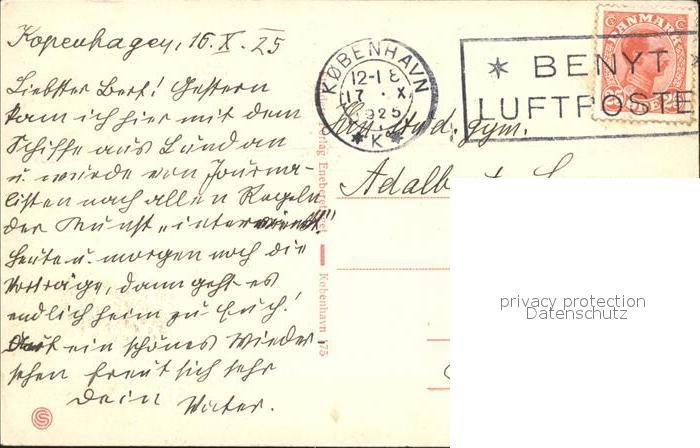 Kopenhagen, 16.X.25
Liebster Bert! Gestern
kam ich hier mit dem
Schiffe aus Lund an
u. wurde von Journa-
listen nach allen Regeln
der Kunst „interviewt"
Heute u. morgen noch die
Vorträge, dann geht es
endlich heim zu Euch!
Auf ein schönes Wieder-
sehen freut sich sehr
Dein Vater.
KØBENHAVN
12-1 E
17. X
1925
* K *
* BENYT *
LUFTPOSTE
DANMARK
25 25
stud. gym.
Adalb
Eneberettiget
København 175
privacy protection
Datenschutz